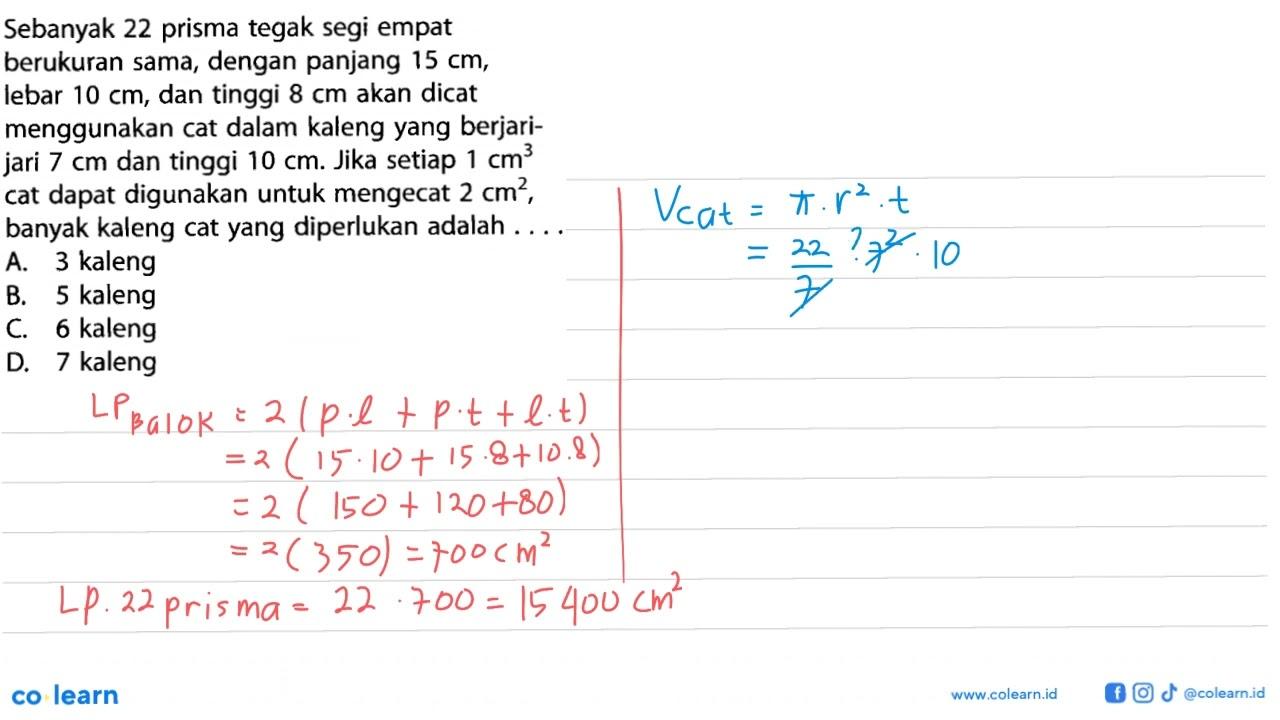 Sebanyak 22 prisma tegak segi empat
berukuran sama, dengan panjang 15 cm,
lebar 10 cm, dan tinggi 8 cm akan dicat
menggunakan cat dalam kaleng yang berjari-
jari 7 cm dan tinggi 10 cm. Jika setiap 1 cm³
cat dapat digunakan untuk mengecat 2 cm²,
banyak kaleng cat yang diperlukan adalah . . . .
A. 3 kaleng
B. 5 kaleng
C. 6 kaleng
D. 7 kaleng
LP Balok = 2 (p.l + p.t + l.t)
= 2 (15.10 + 15.8 + 10.8)
= 2 (150 + 120 + 80)
= 2 (350) = 700 cm²
Lp. 22 prisma = 22 . 700 = 15400 cm²
Vcat = π . r² . t
= 22/7 . 7² . 10
co learn
www.colearn.id
@colearn.id